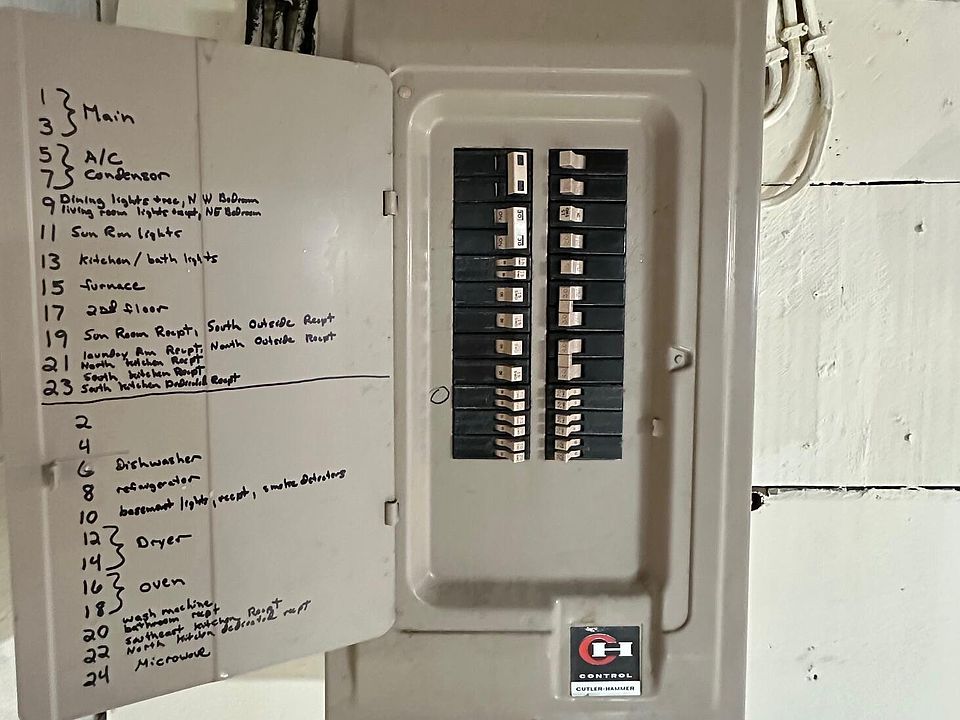 1
3 } Main
5 } A/C
7 } Condensor
9 Dining lights + rec, N W BeDroom
living room lights + rept, NE BeDroom
11 Sun Rm lights
13 kitchen / bath lights
15 furnace
17 2nd floor
19 Sun Room Recpt, South Outside Recpt
laundry Rm Recpt, North Outside Recpt
21 North kitchen Recpt
South kitchen Recpt
23 South kitchen Dedicated Recpt
2
4
6 Dishwasher
8 refairgerator
10 basement lights, recpt, smoke detrators
12 } Dryer
14
16 } oven
18
wash machine
20 bathroom recpt
southeast kitchen Recpt
22 North kitchen dedicated recpt
24 Microwave
CH
CONTROL
CUTLER-HAMMER